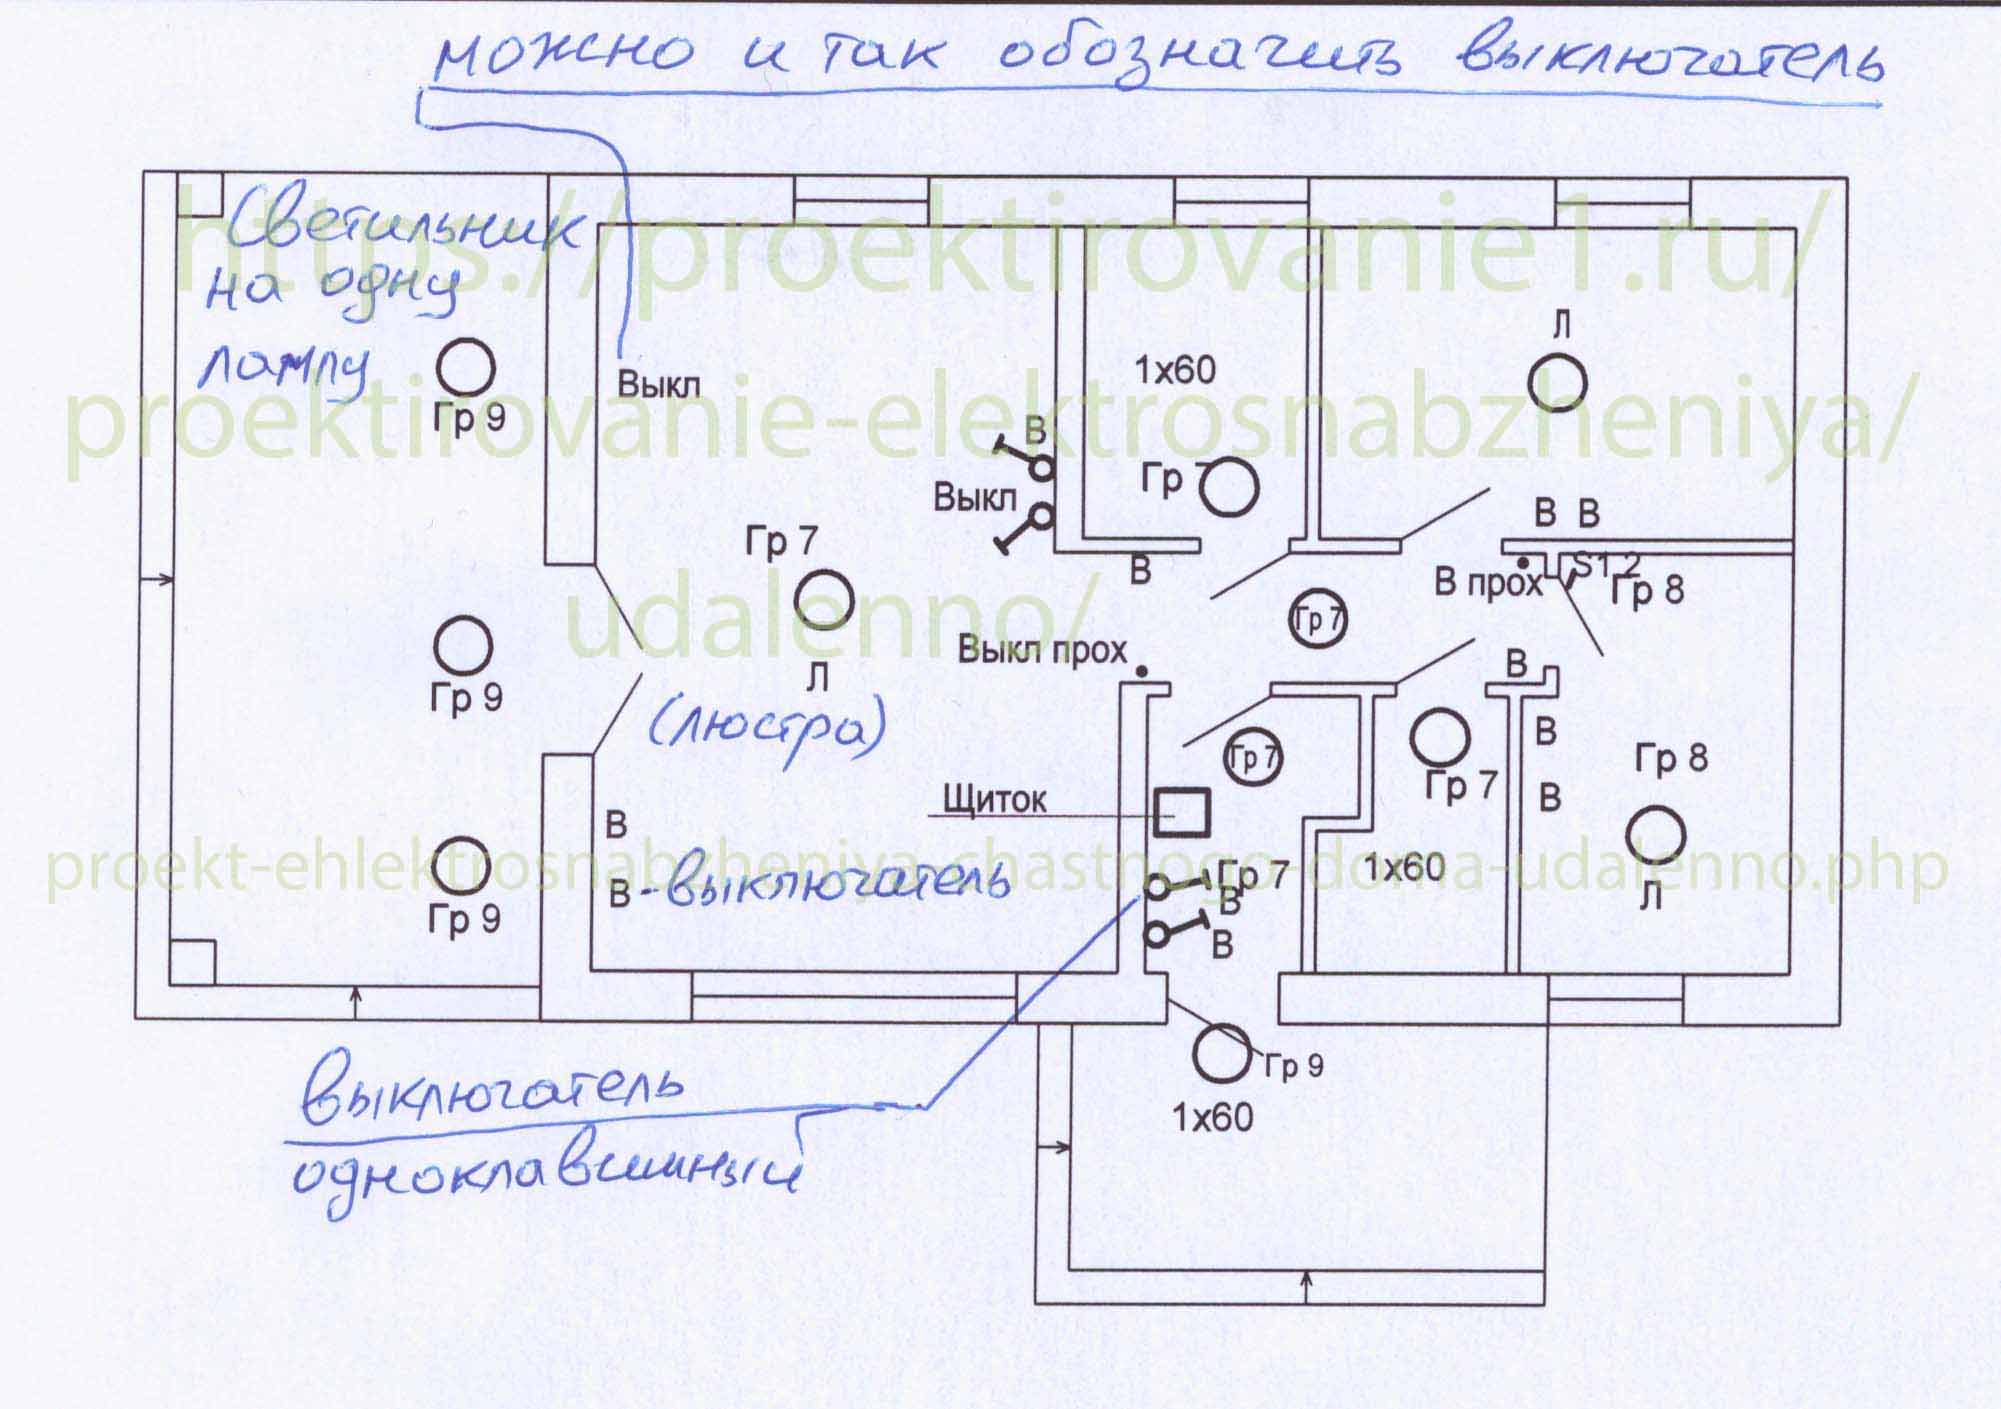 можно и так обозначить выключатель
Светильник
на одну
лампу
https://proektirovanie1.ru/
proektirovanie-elektrosnabzheniya/
udalenno/
proekt-ehlektrosnabzheniya-chastnogo-doma-udalenno.php
Гр 9
Выкл
В
Выкл
1х60
Гр 7
Л
В В
Гр 7
Л
(люстра)
В
В прох
S1.2
Гр 8
Гр 7
Выкл прох
Гр 9
В
Гр 7
Гр 7
В
В
Гр 8
Л
Щиток
В
В - выключатель
Гр 7
В
В
1х60
Гр 9
выключатель
одноклавишный
Гр 9
1х60